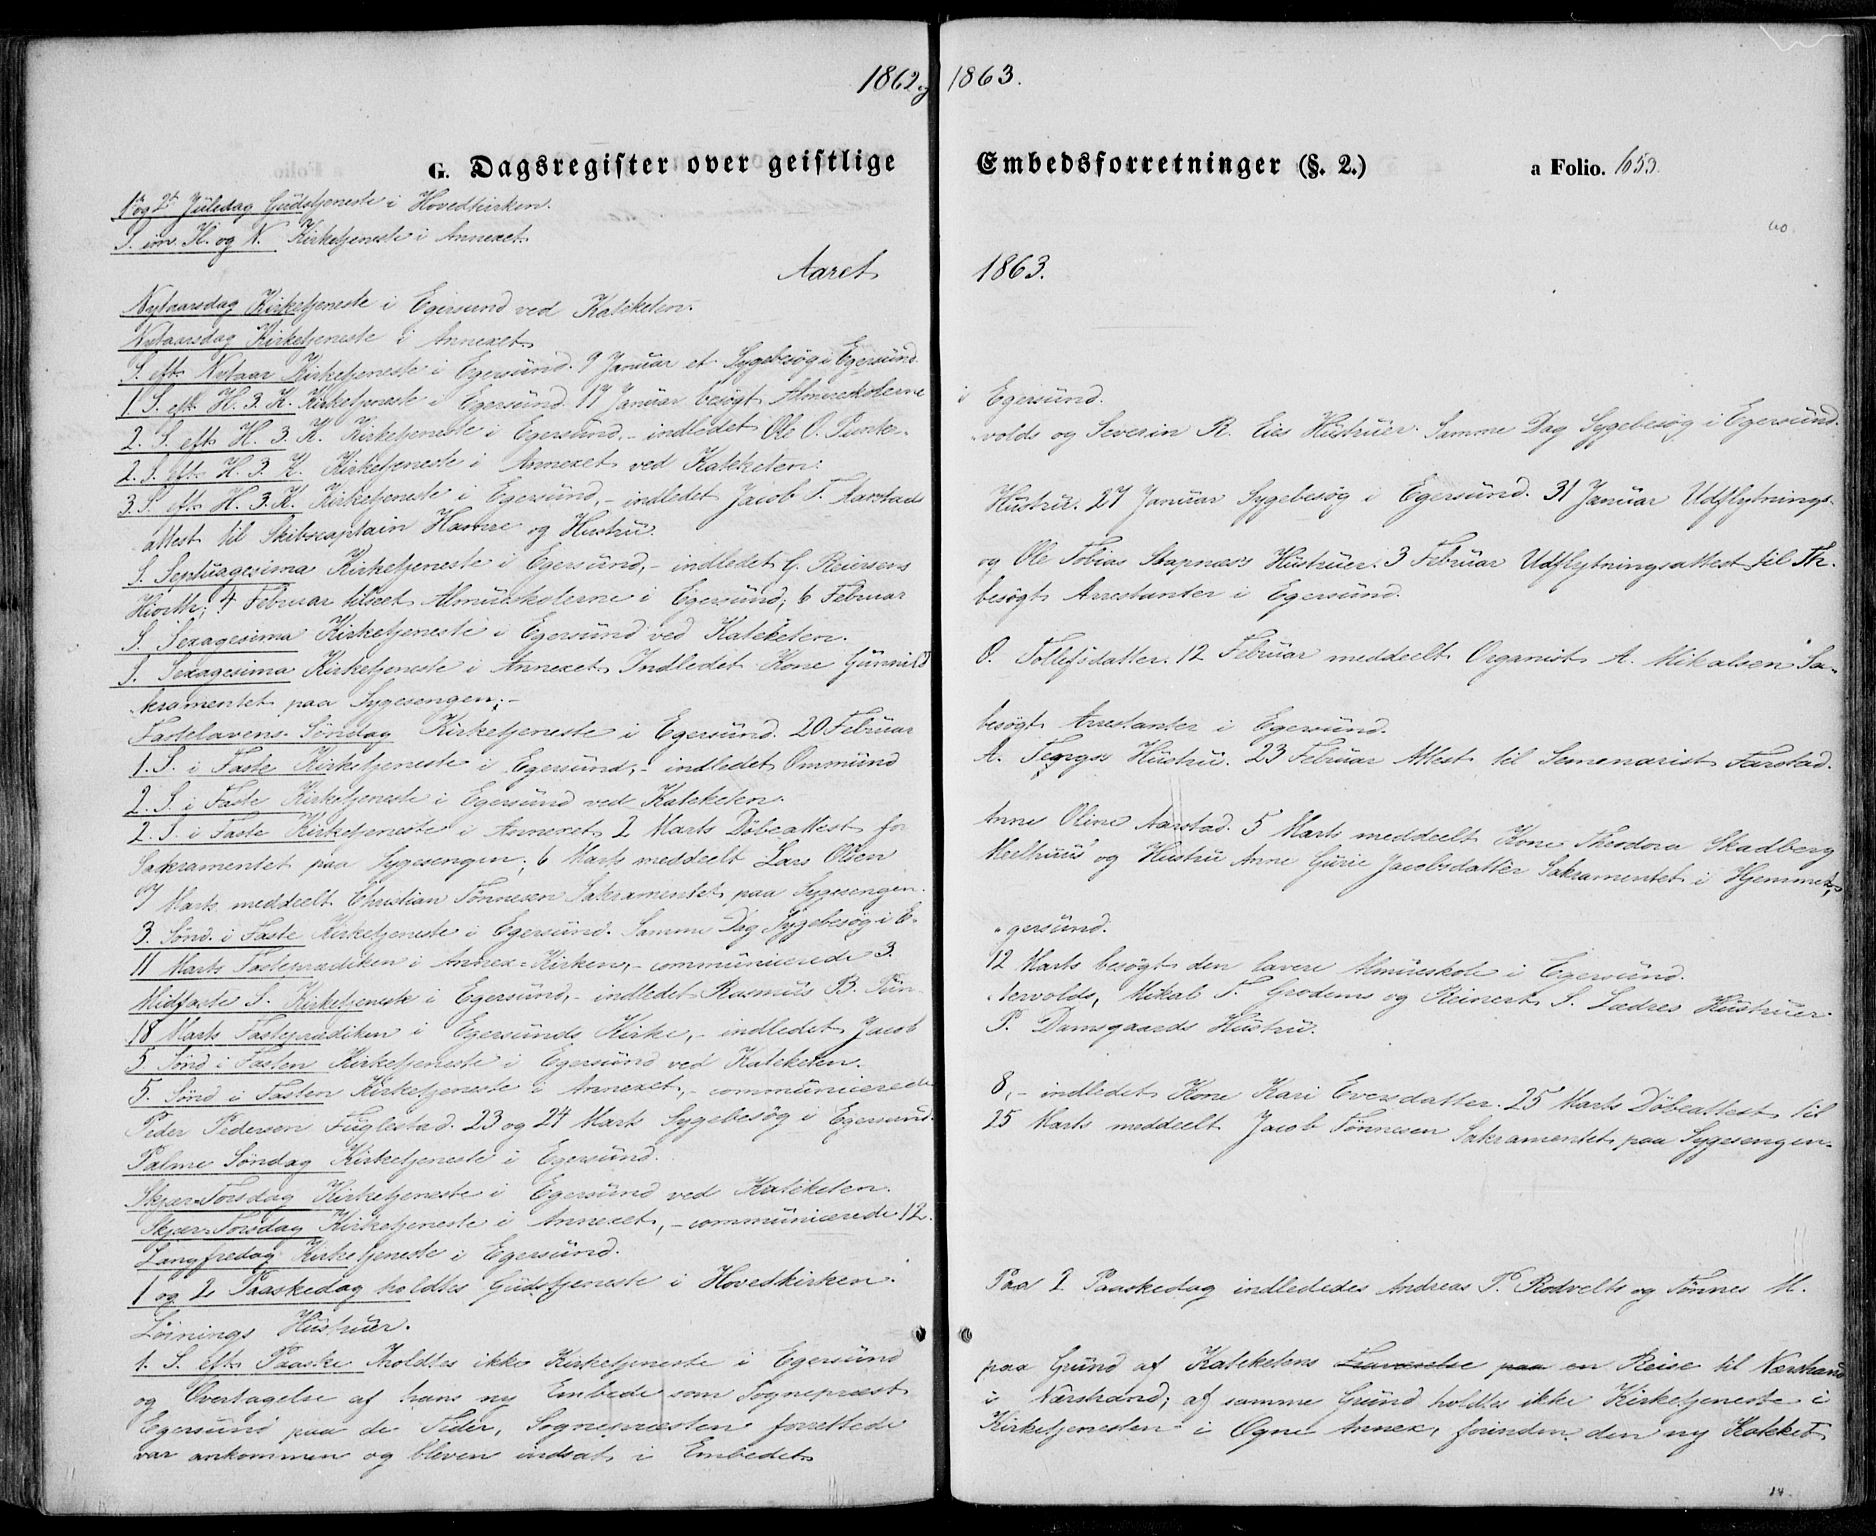 1862 og 1863.
G. Dagsregister over geistlige Embedsforretninger (§. 2.) a Folio. 653.
1ste og 2den Juledag Gudstjeneste i Hovedkirken.
S. im. H. og N. Kirketjeneste i Annexet.
Aaret 1863.
Nytaarsdag Kirketjeneste i Egersund ved Kateketen.
Nytaarsdag Kirketjeneste i Annexet.
S. eft. Nytaar Kirketjeneste i Egersund. 9 Januar et Sygebesøg i Egersund.
1 S. eft. H. 3. K. Kirketjeneste i Egersund. 17 Januar besøgt Almueskolerne i Egersund.
2. S. eft. H. 3. K. Kirketjeneste i Egersund, - indledet Ole O. Punter-volds og Severin R. Eies Hustruer. Samme Dag Sygebesøg i Egersund.
2. S. eft. H. 3. K. Kirketjeneste i Annexet ved Katekten.
3. S. eft. H. 3. K. Kirketjeneste i Egersund, - indledet Jacob T. Aarstads Hustru. 27 Januar Sygebesøg i Egersund. 31 Januar Udflytnings-
attest til Skibscaptain Hamre og Hustru.
S. Septuagesima Kirketjeneste i Egersund, - indledet G. Reiersens og Ole Tobias Stapnæs's Hustruer. 3 Februar Udflytningsattest til Th.
Hiorth; 4 Februar tilseet Almueskolerne i Egersund; 6 Februar besøgt Arrestanter i Egersund.
S. Sexagesima Kirketjeneste i Egersund ved Katekten.
S. Sexagesima Kirketjeneste i Annexet. Indledet Kone Gunnild O. Tollefsdatter. 12 Februar meddeelt Organist A. Mikalsen Sa-
kramentet paa Sygesengen; -
Fastelavens-Søndag Kirketjeneste i Egersund. 20 Februar besøgt Arrestanter i Egersund.
1. S. i Faste Kirketjeneste i Egersund, - indledet Ommund A. Tengs Hustru. 23 Februar Attest til Semenarist Farstad.
2. S. i Faste Kirketjeneste i Egersund ved Kateketen.
2. S. i Faste Kirketjeneste i Annexet. 2 Marts Døbeattest for Anne Oline Aarstad. 5 Marts meddeelt Kone Theodora Skadberg
Sakramentet paa Sygesengen; 6 Marts meddeelt Lars Olsen Meelhuus og Hustru Anne Gurie Jacobsdatter Sakramentet i Hjemmet;
7 Marts meddeelt Christian Tønnesen Sakramentet paa Sygesengen.
3. Sønd. i Faste Kirketjeneste i Egersund. Samme Dag Sygebesøg i E-gersund.
11 Marts Fasteprædiken i Annex-Kirken, - communicerede 3. 12 Marts besøgt den lavere Almueskole i Egersund.
Midfaste S. Kirketjeneste i Egersund, - indledet Rasmus B. Pün-tervolds, Mikal T. Grødems og Reinert S. Lædres Hustruer.
18 Marts Fasteprædiken i Egersunds Kirke, - indledet Jacob P. Damsgaards Hustru.
5 Sønd i Fasten Kirketjeneste i Egersund ved Kateketen.
5. Sønd i Fasten Kirketjeneste i Annexet, - communicerede 8, - indledet Kone Kari Eversdatter. 25 Marts Døbeattest til
Peder Pedersen Fuglestad. 23 og 24 Marts Sygebesøg i Egersund. 25 Marts meddeelt Jacob Tønnesen Sakramentet paa Sygesengen.
Palme Søndag Kirketjeneste i Egersund.
Skjær-Torsdag Kirketjeneste i Egersund ved Kateketen.
Skjær-Torsdag Kirketjeneste i Annexet, - communicerede 12.
Langfredag Kirketjeneste i Egersund.
1 og 2 Paaskedag holdtes Gudstjeneste i Hovedkirken. Paa 2 Paaskedag indlededes Andreas P. Rodvelts og Tønnes M.
Løinings Hustruer.
1. S. eft. Paaske holdtes ikke Kirketjeneste i Egersund paa Grund af Kateketens Fraværelse paa en Reise til Nærstrand
og Overtagelse af hans ny Embede som Sognepræst i Nærstrand; af samme Grund holdtes ikke Kirketjeneste i
Egersund paa de Tider, Sognepræsten forrettede Kirketjenesten i Ogne Annex, forinden den ny Katekket
var ankommen og bleven indsat i Embedet.